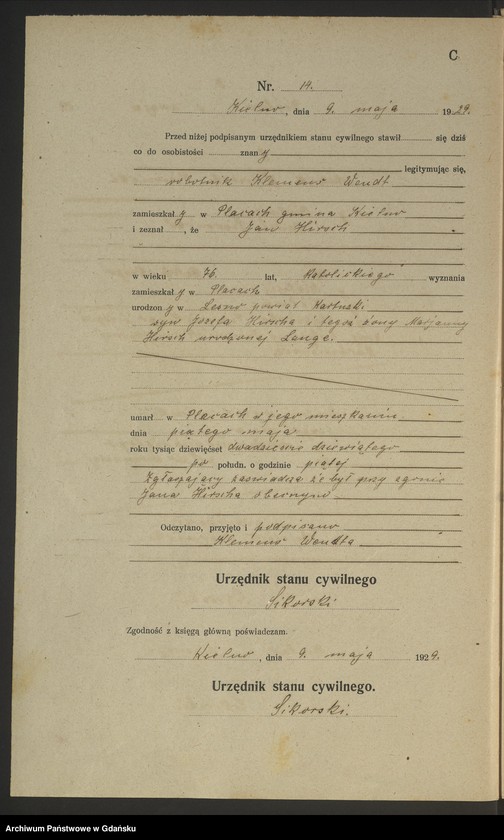 C
Nr. 14.
Kielno, dnia 9. maja 1929.
Przed niżej podpisanym urzędnikiem stanu cywilnego stawił się dziś
co do osobistości znany
legitymując się,
robotnik Klemens Wendt
zamieszkały w Placach gmina Kielno
i zeznał, że Jan Hirsch
w wieku 76 lat, katolickiego wyznania
zamieszkały w Placach
urodzony w Leśno powiat Kartuski
syn Józefa Hirscha i tegoż żony Marjanny
Hirsch urodzonej Lange.
umarł w Placach w jego mieszkaniu
dnia piątego maja
roku tysiąc dziewięćset dwadzieścia dziewiątego
po połudn. o godzinie piątej
Zgłaszający zaświadcza że był przy zgonie
Jana Hirscha obecnym
Odczytano, przyjęto i podpisano
Klemens Wendta
Urzędnik stanu cywilnego
Sikorski
Zgodność z księgą główną poświadczam.
Kielno, dnia 9. maja 1929.
Urzędnik stanu cywilnego.
Sikorski.
Archiwum Państwowe w Gdańsku